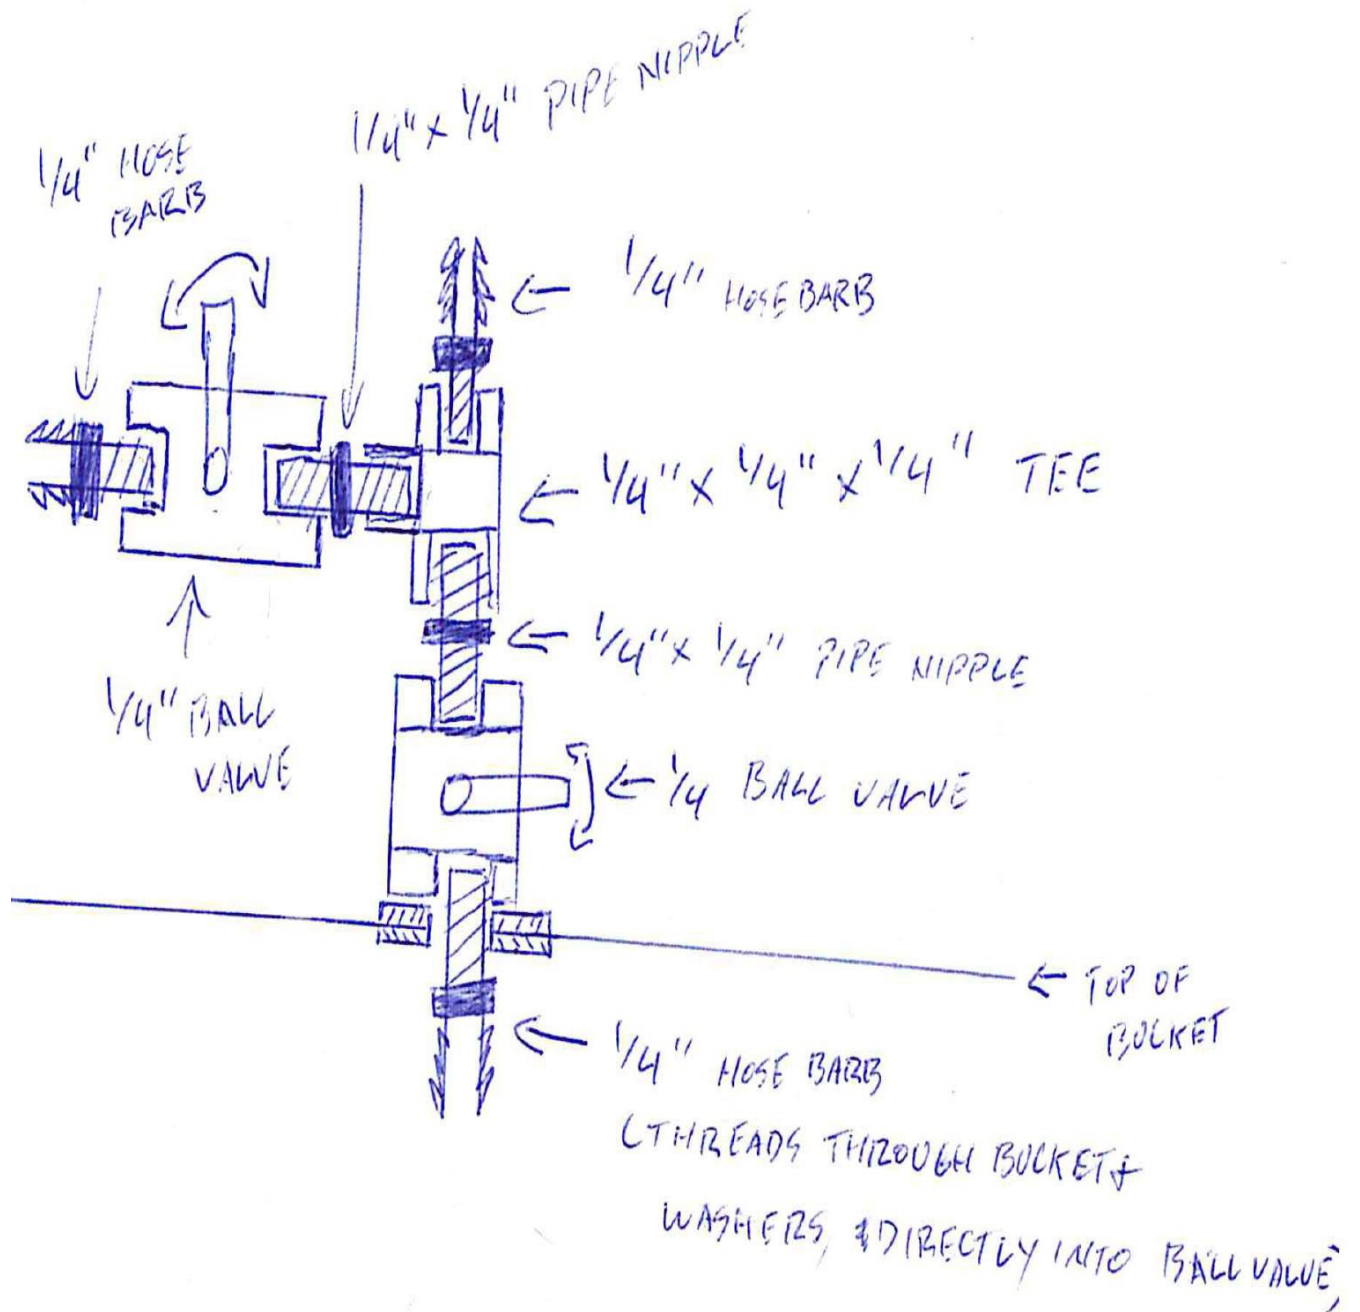 1/4" x 1/4" PIPE NIPPLE
1/4" HOSE
BARB
1/4" HOSE BARB
1/4" x 1/4" x 1/4" TEE
1/4" x 1/4" PIPE NIPPLE
1/4" BALL
VALVE
1/4 BALL VALVE
TOP OF
BUCKET
1/4" HOSE BARB
(THREADS THROUGH BUCKET &
WASHERS, & DIRECTLY INTO BALL VALVE)